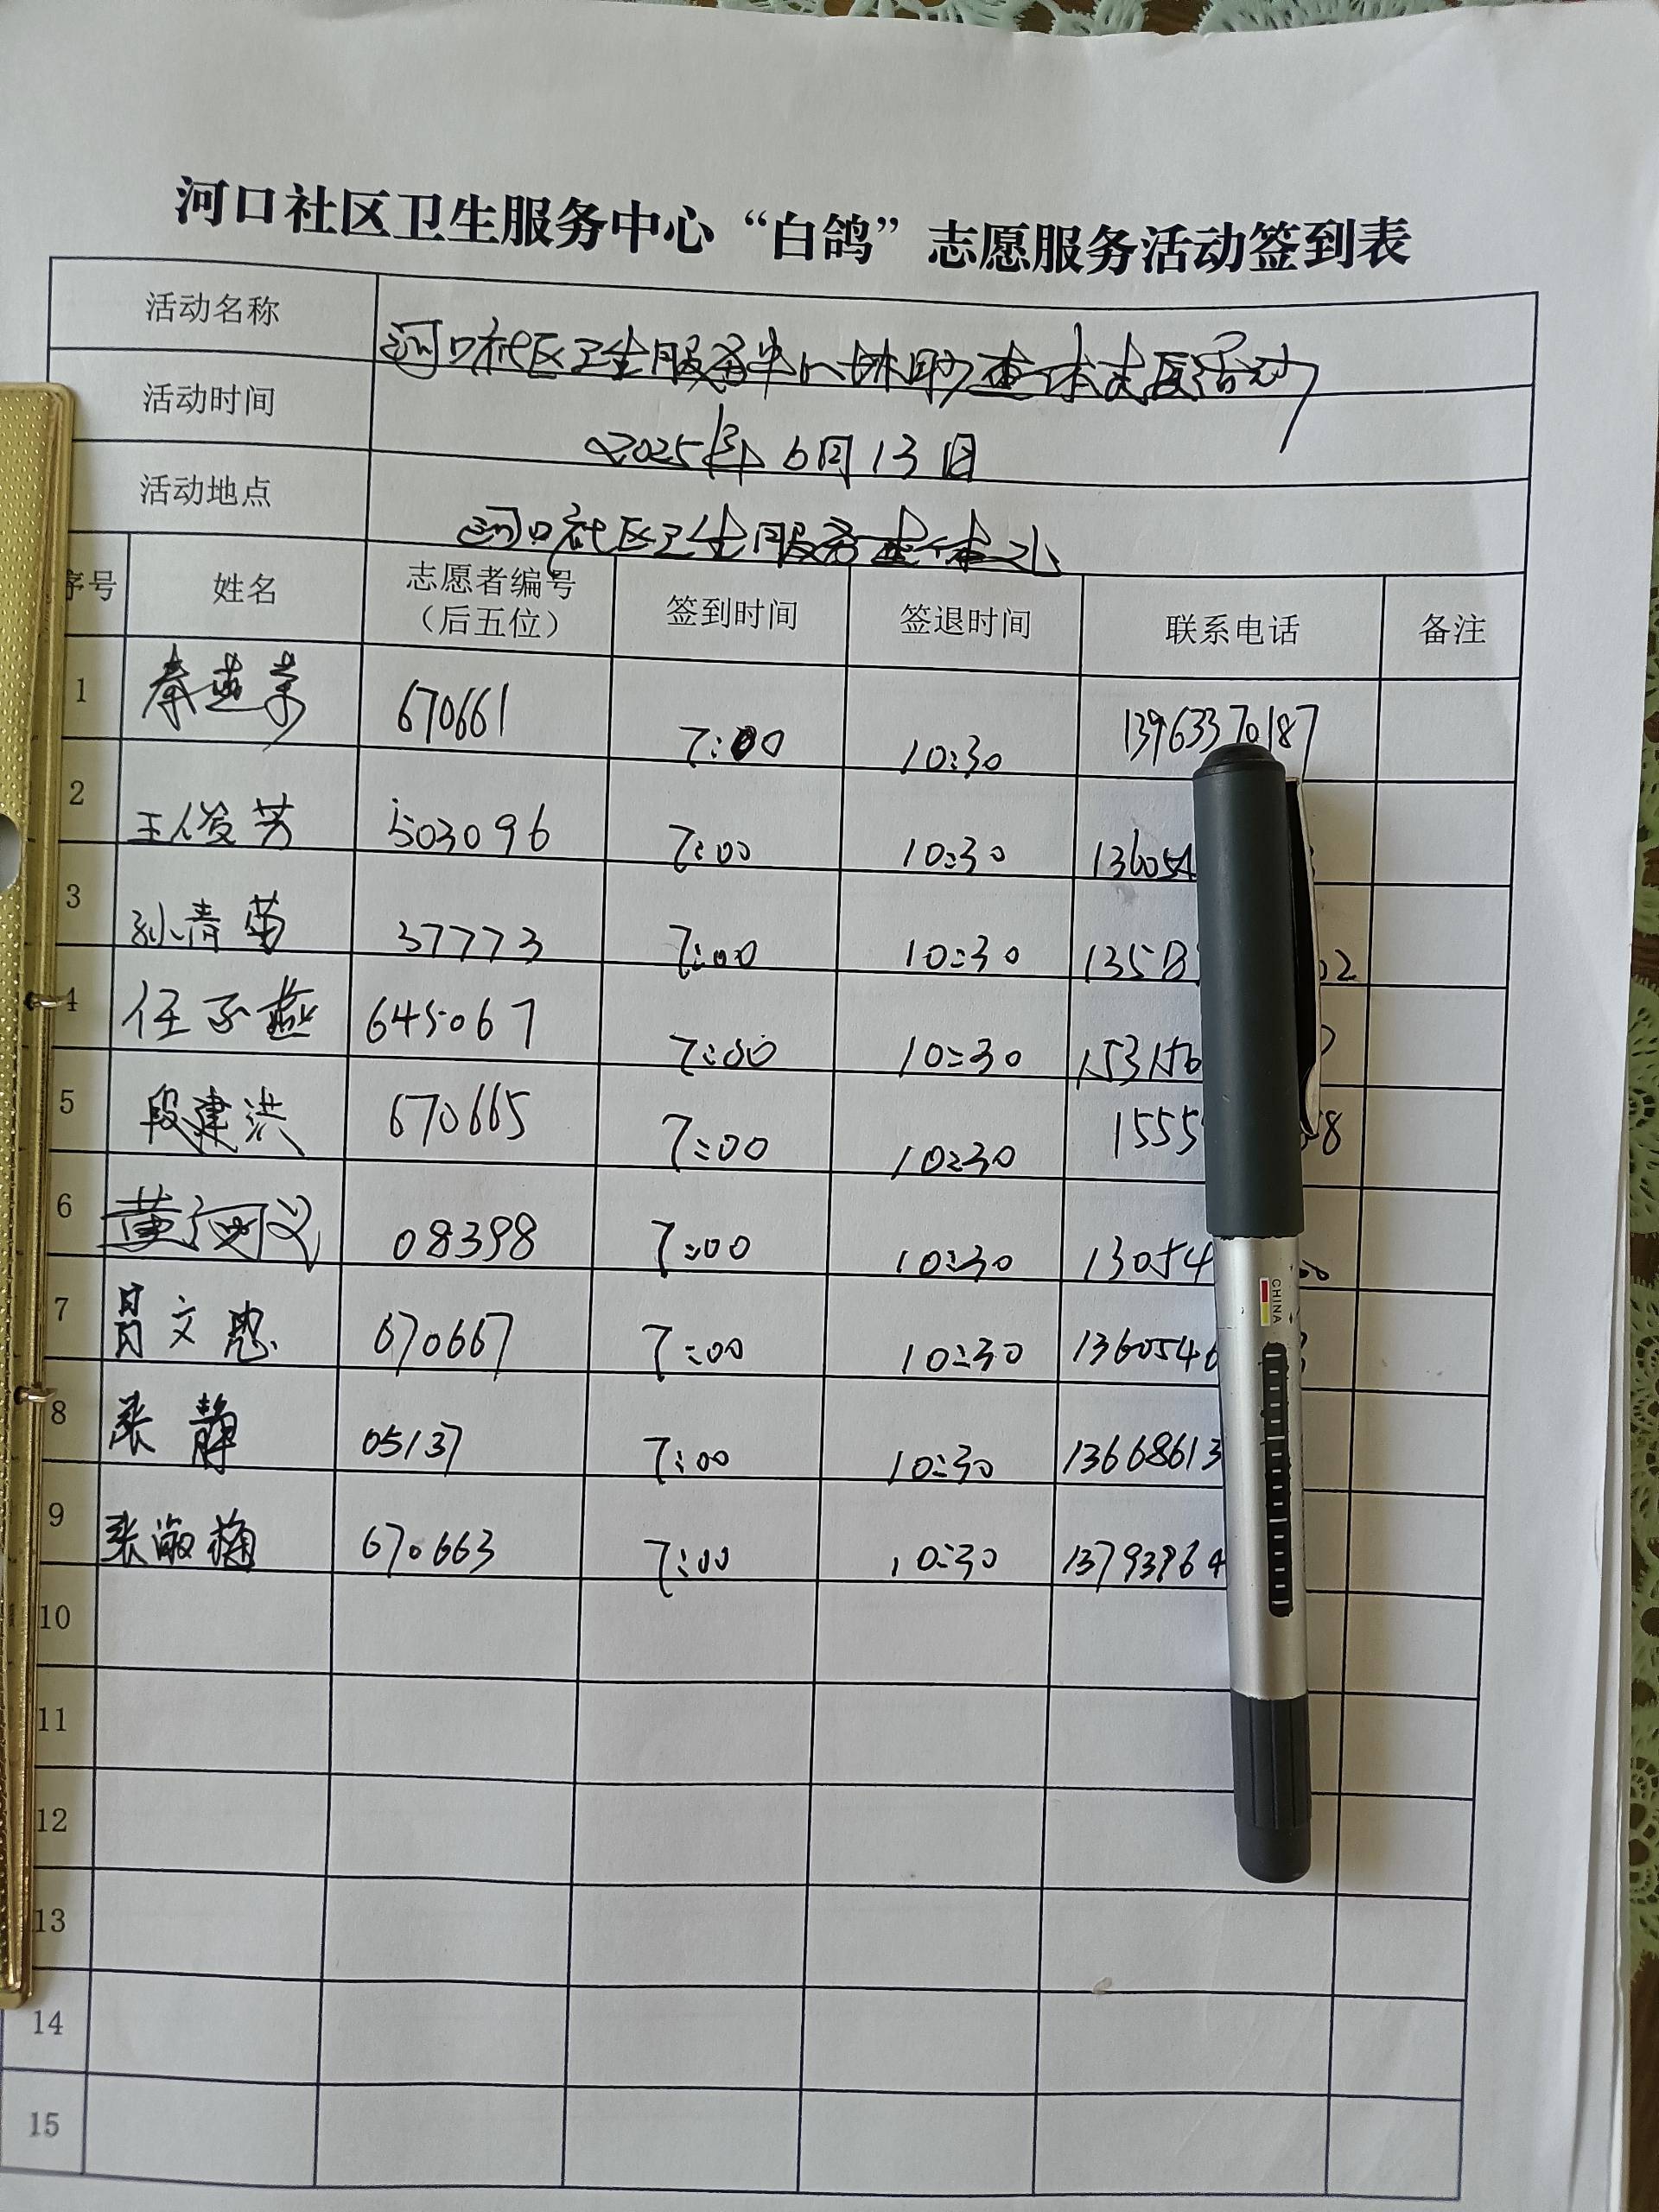 河口社区卫生服务中心“白鸽”志愿服务活动签到表
活动名称 河口社区卫生服务中心协助查体志愿活动
活动时间 2025年6月13日
活动地点 河口社区卫生服务
序号 姓名 志愿者编号（后五位） 签到时间 签退时间 联系电话 备注
1 秦燕 670661 7:00 10:30 13963370187
2 王俊芳 503096 7:00 10:30 136054
3 孙青菊 37773 7:00 10:30 135 02
4 任子燕 645067 7:00 10:30 153156
5 段建洪 670665 7:00 10:30 1555 58
6 黄河义 08398 7:00 10:30 13054
7 文忠 670667 7:00 10:30 1360546
8 张静 05137 7:00 10:30 13668613
9 张敏 670663 7:00 10:30 13793964
10
11
12
13
14
15
CHINA